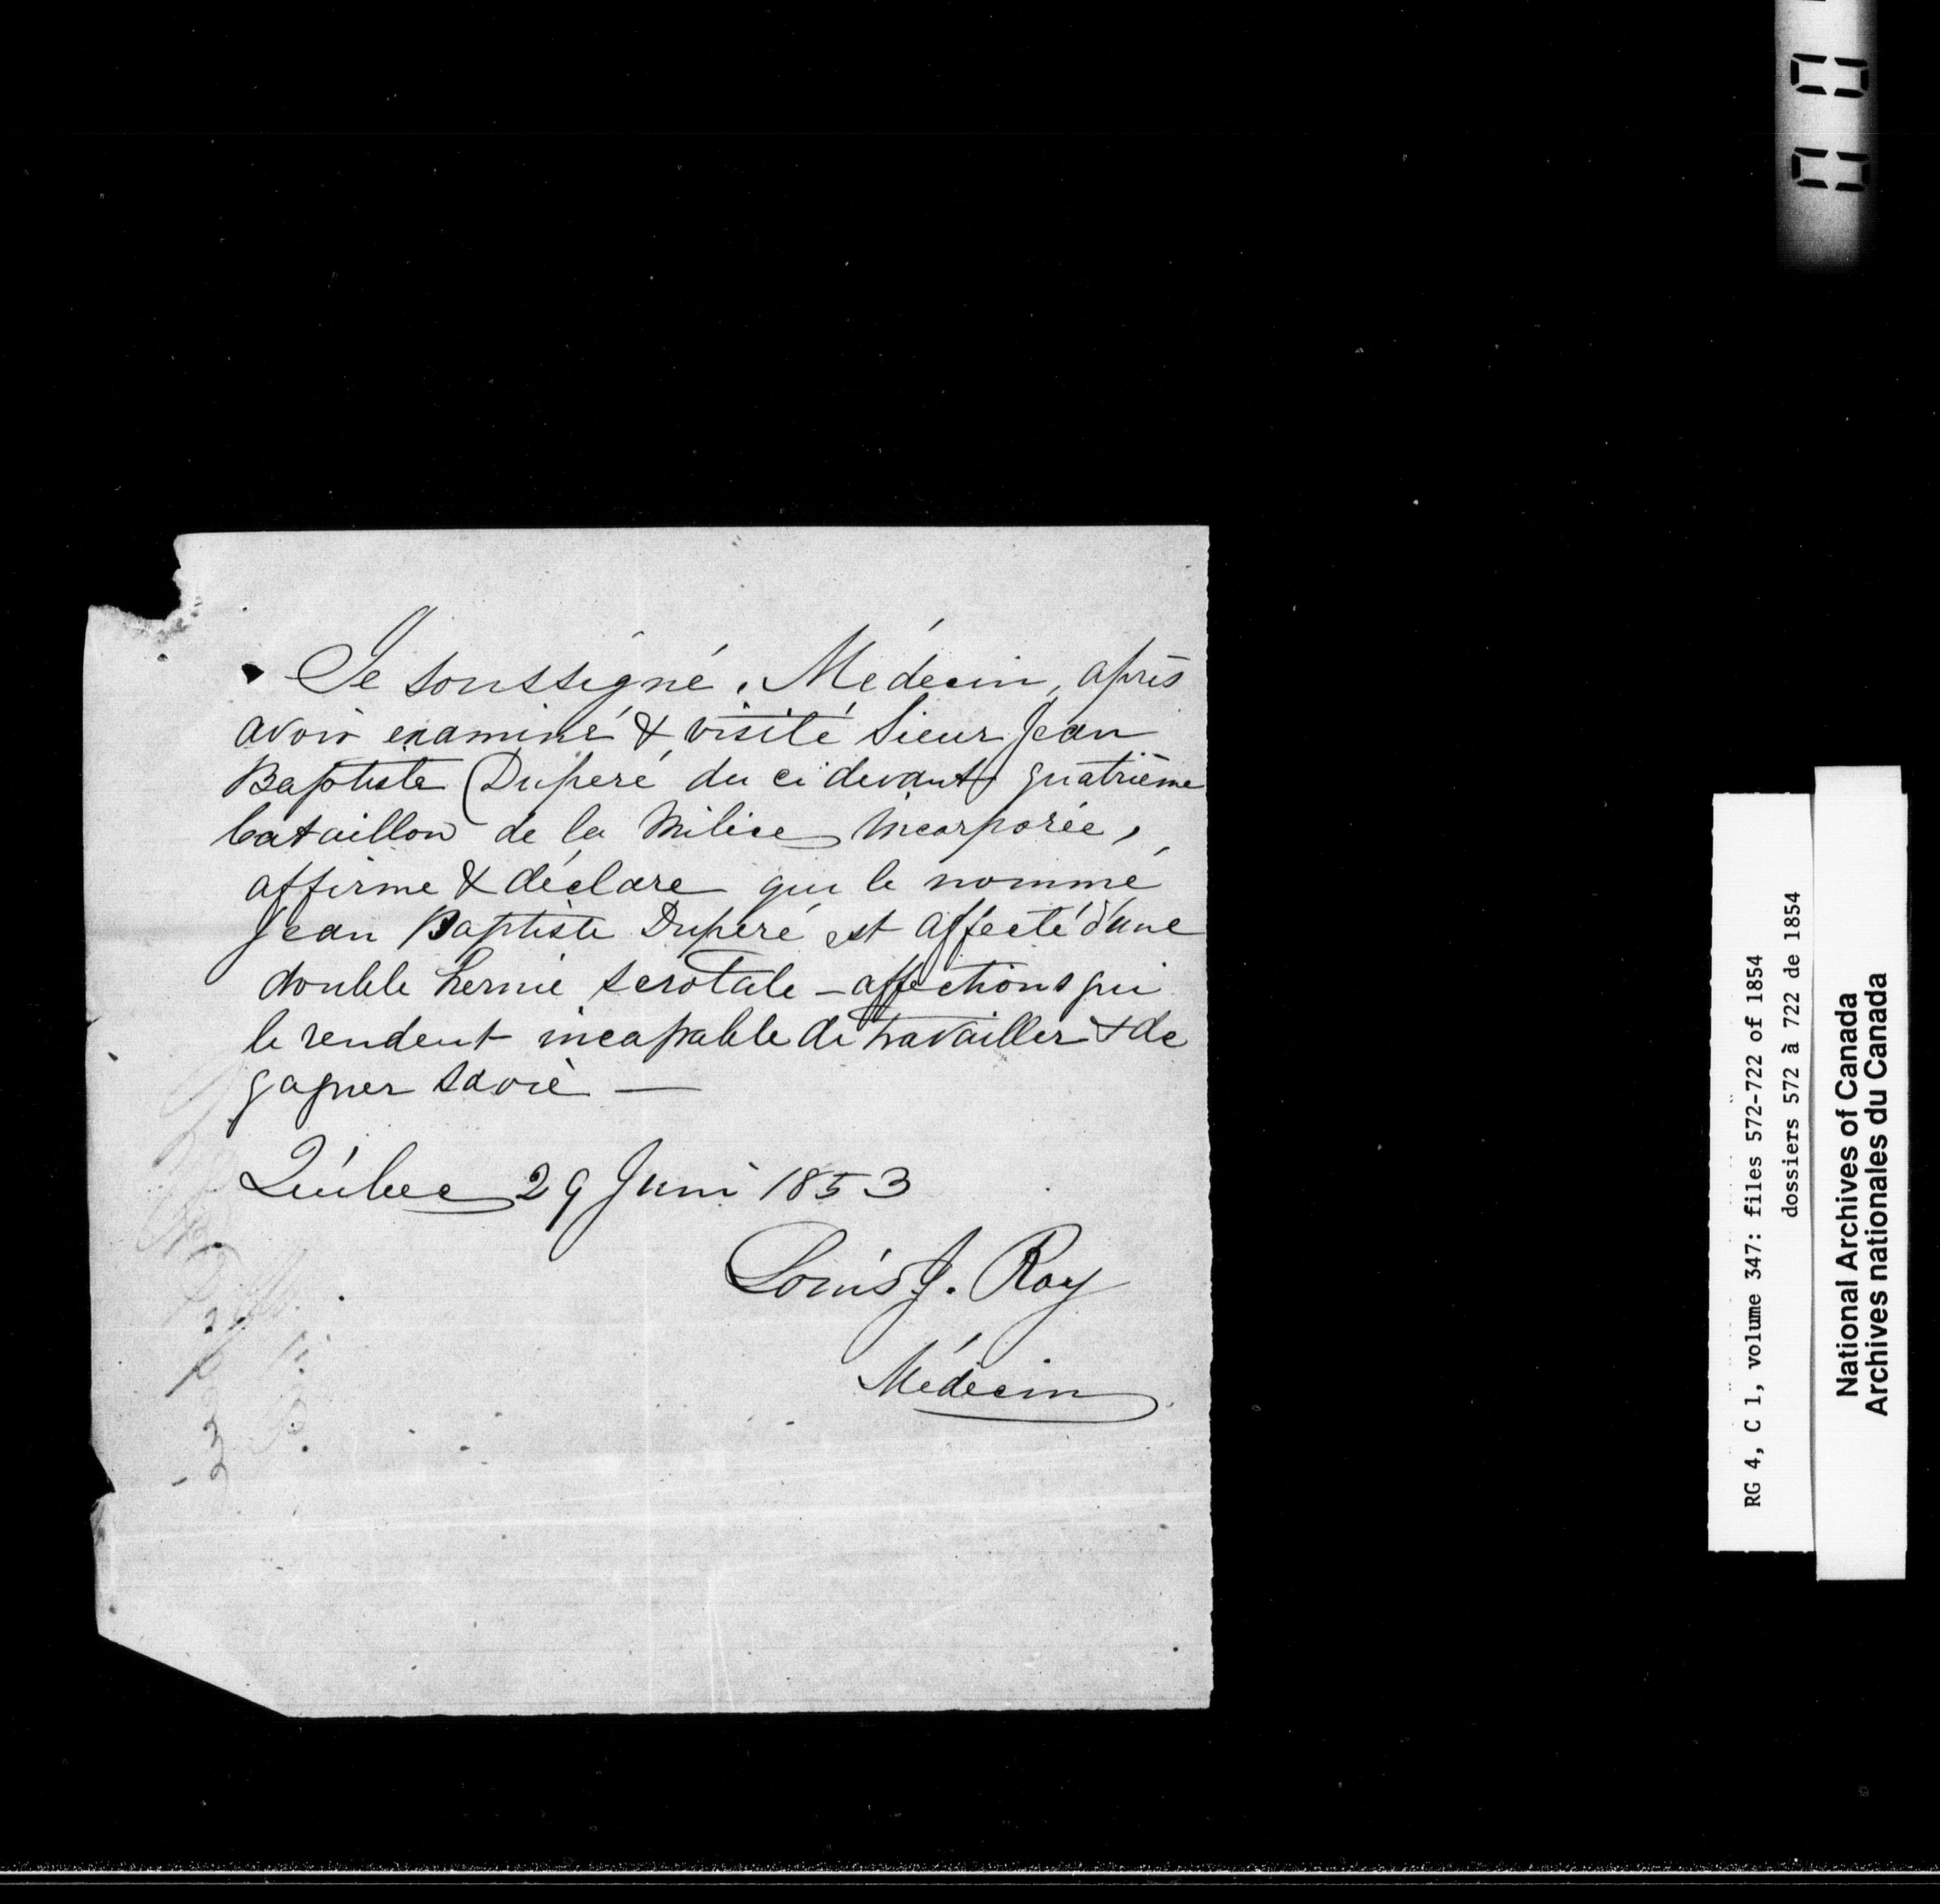 Je soussigné, Médecin, après
avoir examiné & visité Sieur Jean
Baptiste Duperé du ci devant quatrième
bataillon de la Milice Incorporée,
affirme & déclare que le nommé
Jean Baptiste Duperé est affecté d'une
double hernie scrotale - affections qui
le rendent incapable de travailler & de
gagner sa vie —
Québec 29 Juin 1853
Louis J. Roy
Médecin
RG 4, C 1, volume 347: files 572-722 of 1854
dossiers 572 à 722 de 1854
National Archives of Canada
Archives nationales du Canada